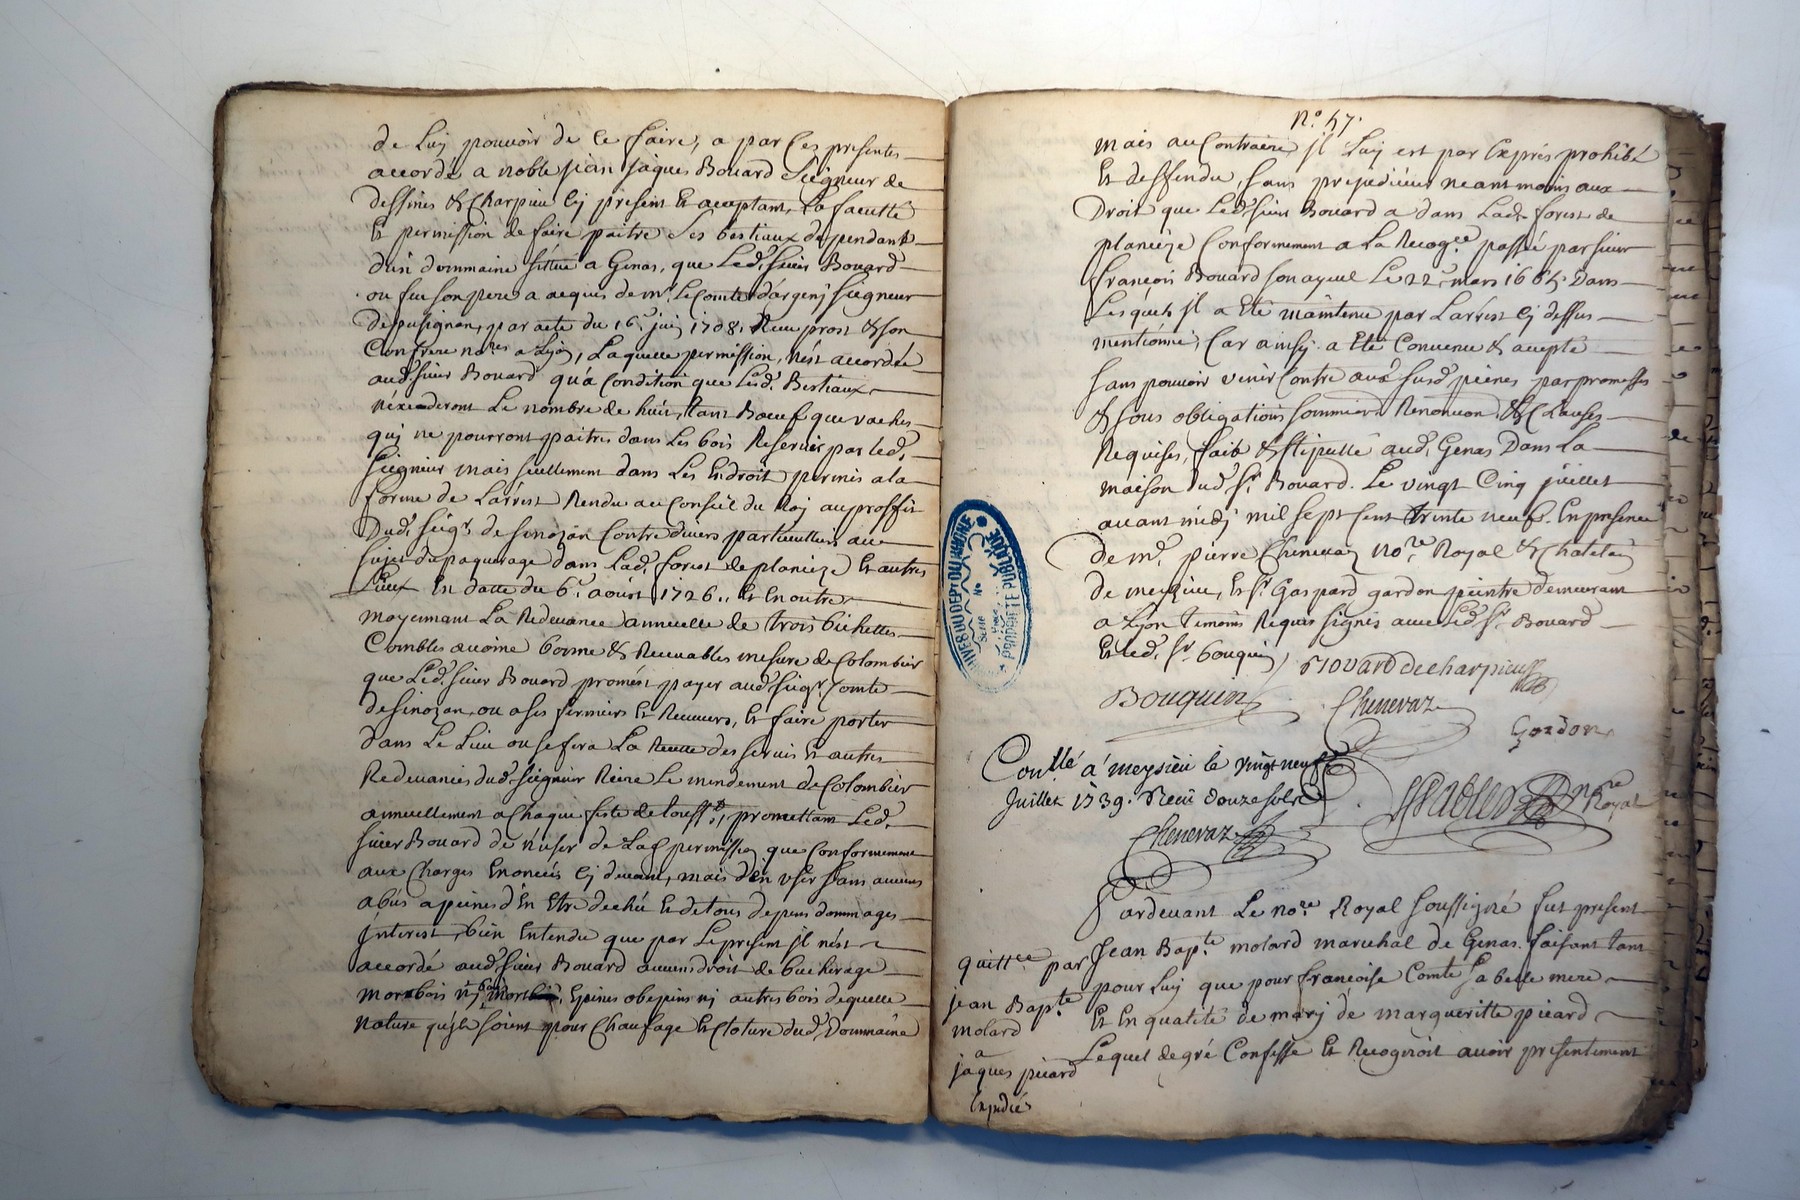 de Luy pouvoir de ce faire, a par Ces presentes
accordé a noble jean jaques Bouard Seigneur de
dessines & Charpieu Cy présent Et aceptant, La faculté
Et permission de faire paitre Ses bestiaux dependant
d'un dommaine scittué a Genas, que Led. sieur Bouard
ou feu son pere a acquis de mr. Le Comte d'argeny seigneur
de pusignan, par acte du 16e. juin 1708, Receu prost & son
Confrere nores a Lyon, Laquelle permission, n'est accordée
aud. sieur Bouard qu'a Condition que Lesd. Bestiaux
n'éxcederont Le nombre de huit, tant Bœuf que vaches
qui ne pourront paitre dans Les bois Reservés par led.
seigneur mais seullement dans Les Endroit permis a la
forme de L'arrest Rendu au Conseil du Roy au proffit
Dud. seigr. de senozan Contre divers particulliers au
sujet du paquerage dans Lad. forest de planeze Et autres
Lieux En datte du 6e. aoust 1726., Et En outre
moyennant La Redevance annuelle de trois bichettes
Combles avoine bonne & Recevables mesure de Colombier
que Led. sieur Bouard promést payer aud. seigr. Comte
de sinozan, ou a ses fermiers Et Receveurs, Et faire porter
dans Le Lieu ou se fera La Recette des servis Et autres
Redevances dud. seigneur Riere Le mendement de Colombier
annuellement a Chaque feste de touss.ts, promettant Led.
sieur Bouard de n'user de Lad. permission que Conformement
aux Charges Enoncées Cy devant, mais d'En user sans aucuns
abus a peines d'En Etre dechu Et de tous depens dommages
Interest, bien Entendu que par Le present il n'est
accordé aud. sieur Bouard aucun droit de bucherage
mort bois ny bois mort, Epines obepins ny autres bois de quelle
nature qu'ils soient pour Chaufage Et Cloture dud. Dommaine
No. 47.
mais au Contraire, jl Luy est par Exprés prohibé
Et deffendu, sans prejudicier neantmoins aux
Droit que Led. sieur Bouard a dans Lad. forest de
planéze Conformement a La Recogce. passée par sieur
françois Bouard son ayeul Le 22e. mars 1685. Dans
Lesquels jl a Eté maintenu par L'arrest Cy dessus
mentionné, Car ainsy a Eté Convenu & acepté
sans pouvoir venir Contre aux susd. peines par promesses
& sous obligations soumissions Renonciation, & Clauses
Requises, fait & stipullé aud. Genas Dans La
maison dud. sr. Bouard. Le vingt Cinq juillet
avant midy mil sept sent trinte neuf. En presence
de mr. pierre Chenevaz nore. Royal & Chatelain
de meyzieu, Et sr. Gaspard gardon peintre demeurant
a Lyon temoins Requis signés avec Led. sr. Bouard
Et led. sr. bouquin
Bouard de charpieu
Bouquin
Chenevaz
Gordon
Conllé a meysieu le vingt neuf
Juillet 1739. Reçu douze sols
Chenevaz
nre
Royal
Pardevant Le nore. Royal soussigné fut present
Jean Bapte. molard marechal de Genas. faisant tant
pour Luy que pour francoise Comte sa belle mere
Et En qualité de mary de margueritte picard
Lequel de gré Confesse Et Recognoit avoir presentement
quittce par
jean Bapte.
molard
a
jaques picard
Expedié